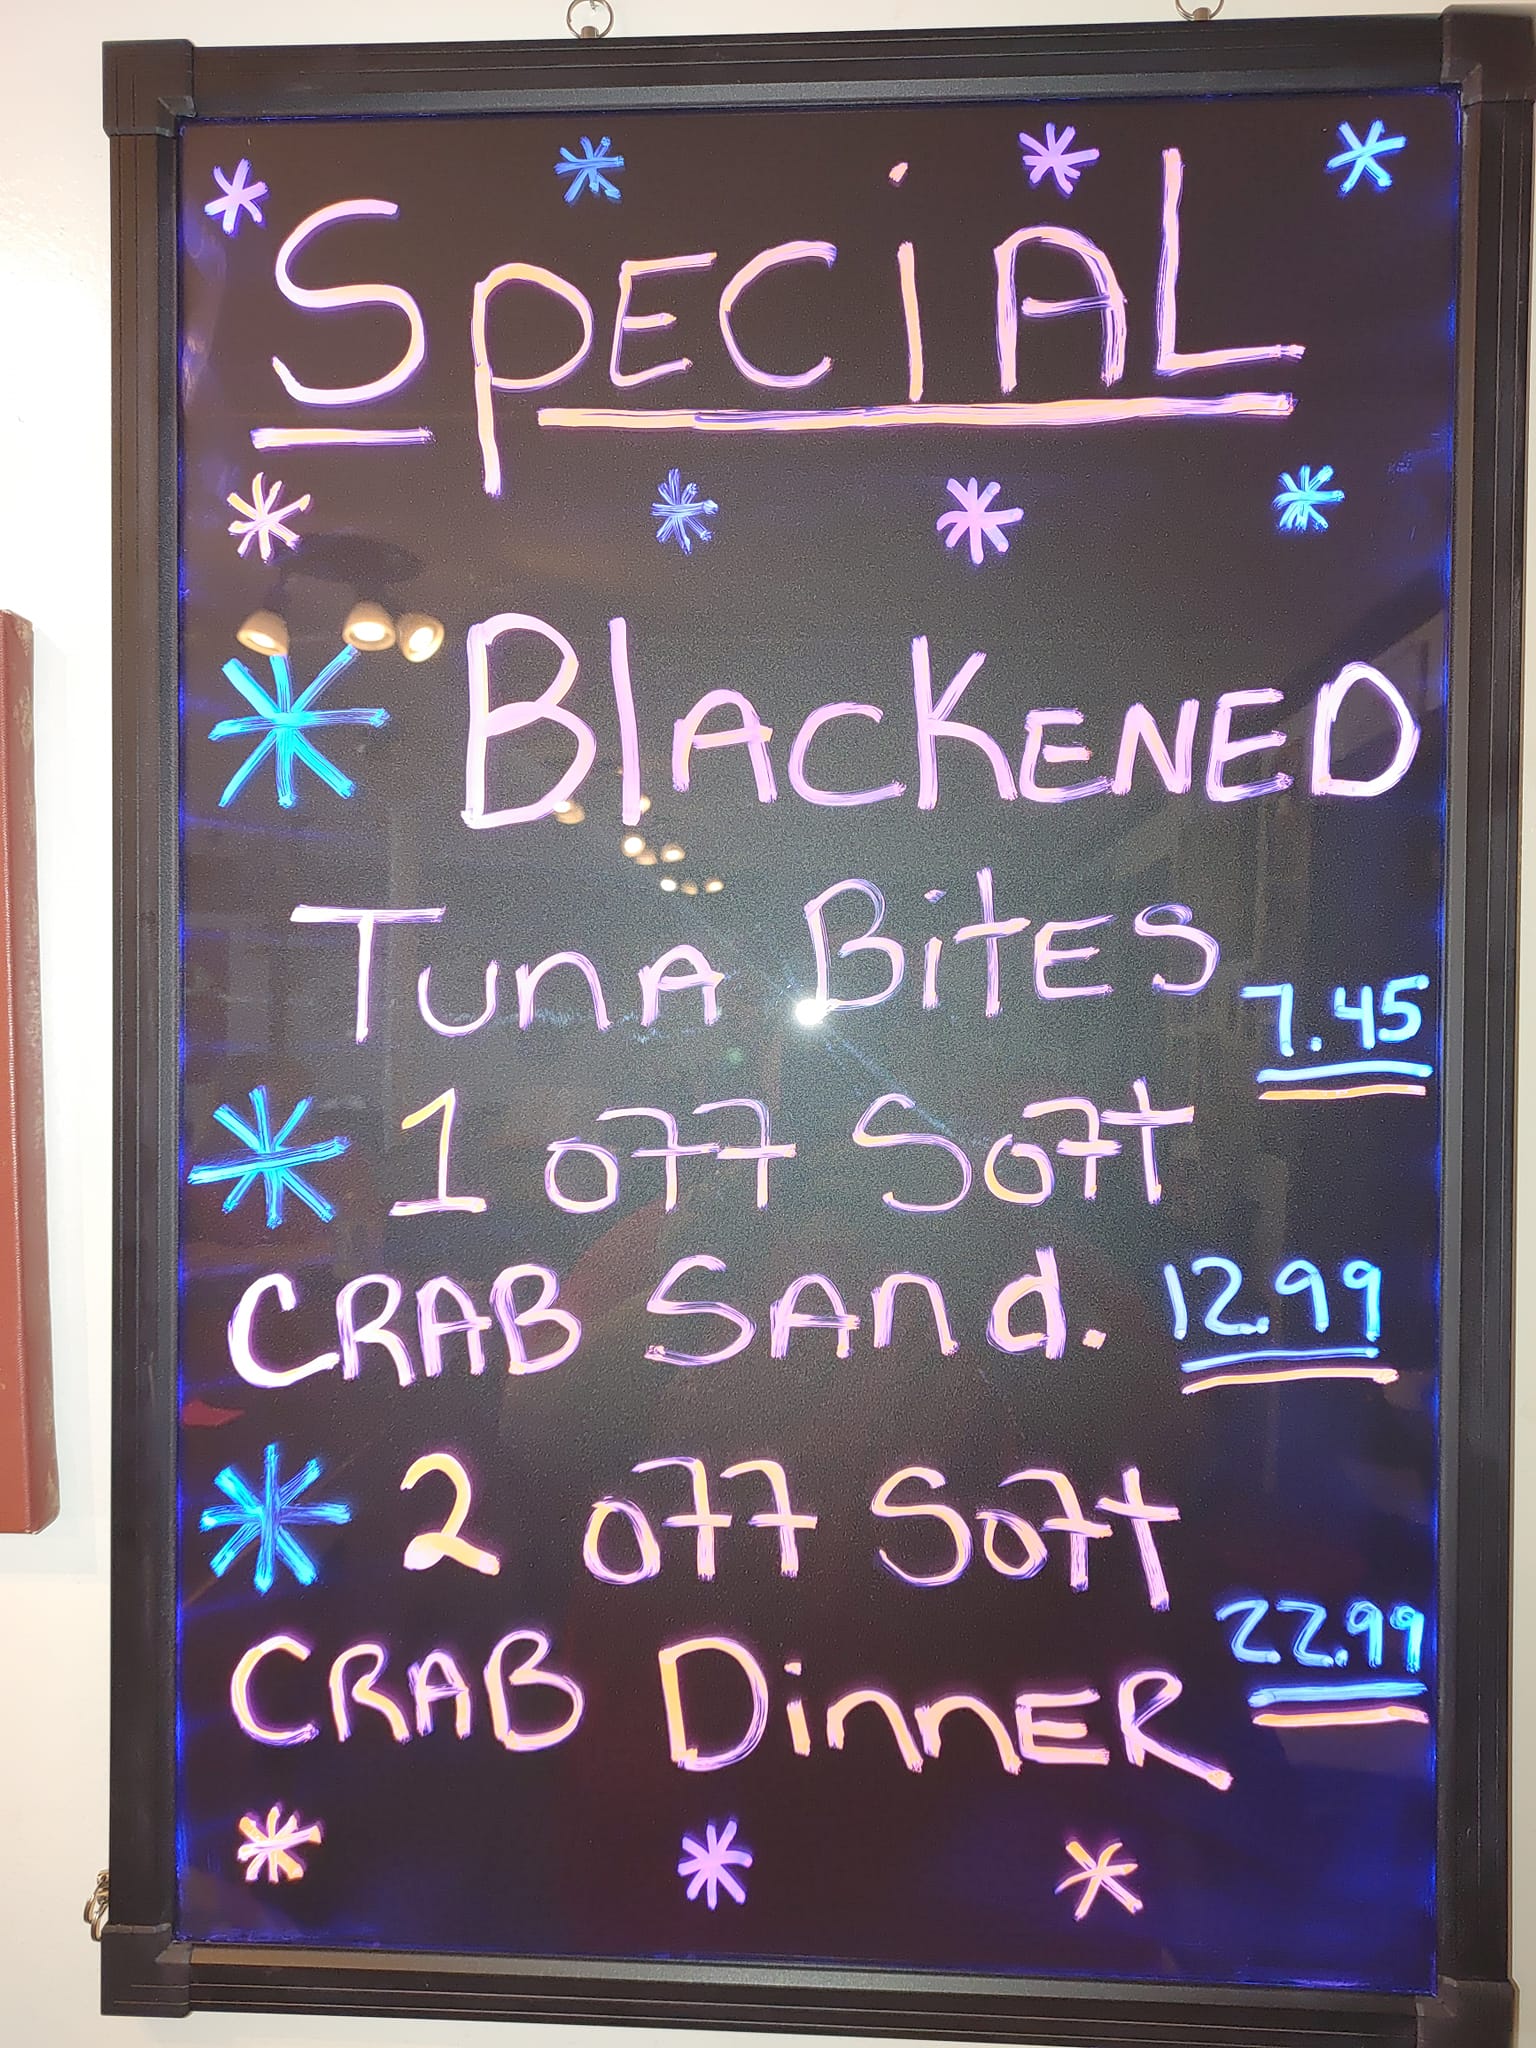 SpECiAL
BlACKENED
TunA BitES
7.45
1 off Soft
CRAB SAnd. 12.99
2 off Soft
CRAB DinnER 22.99